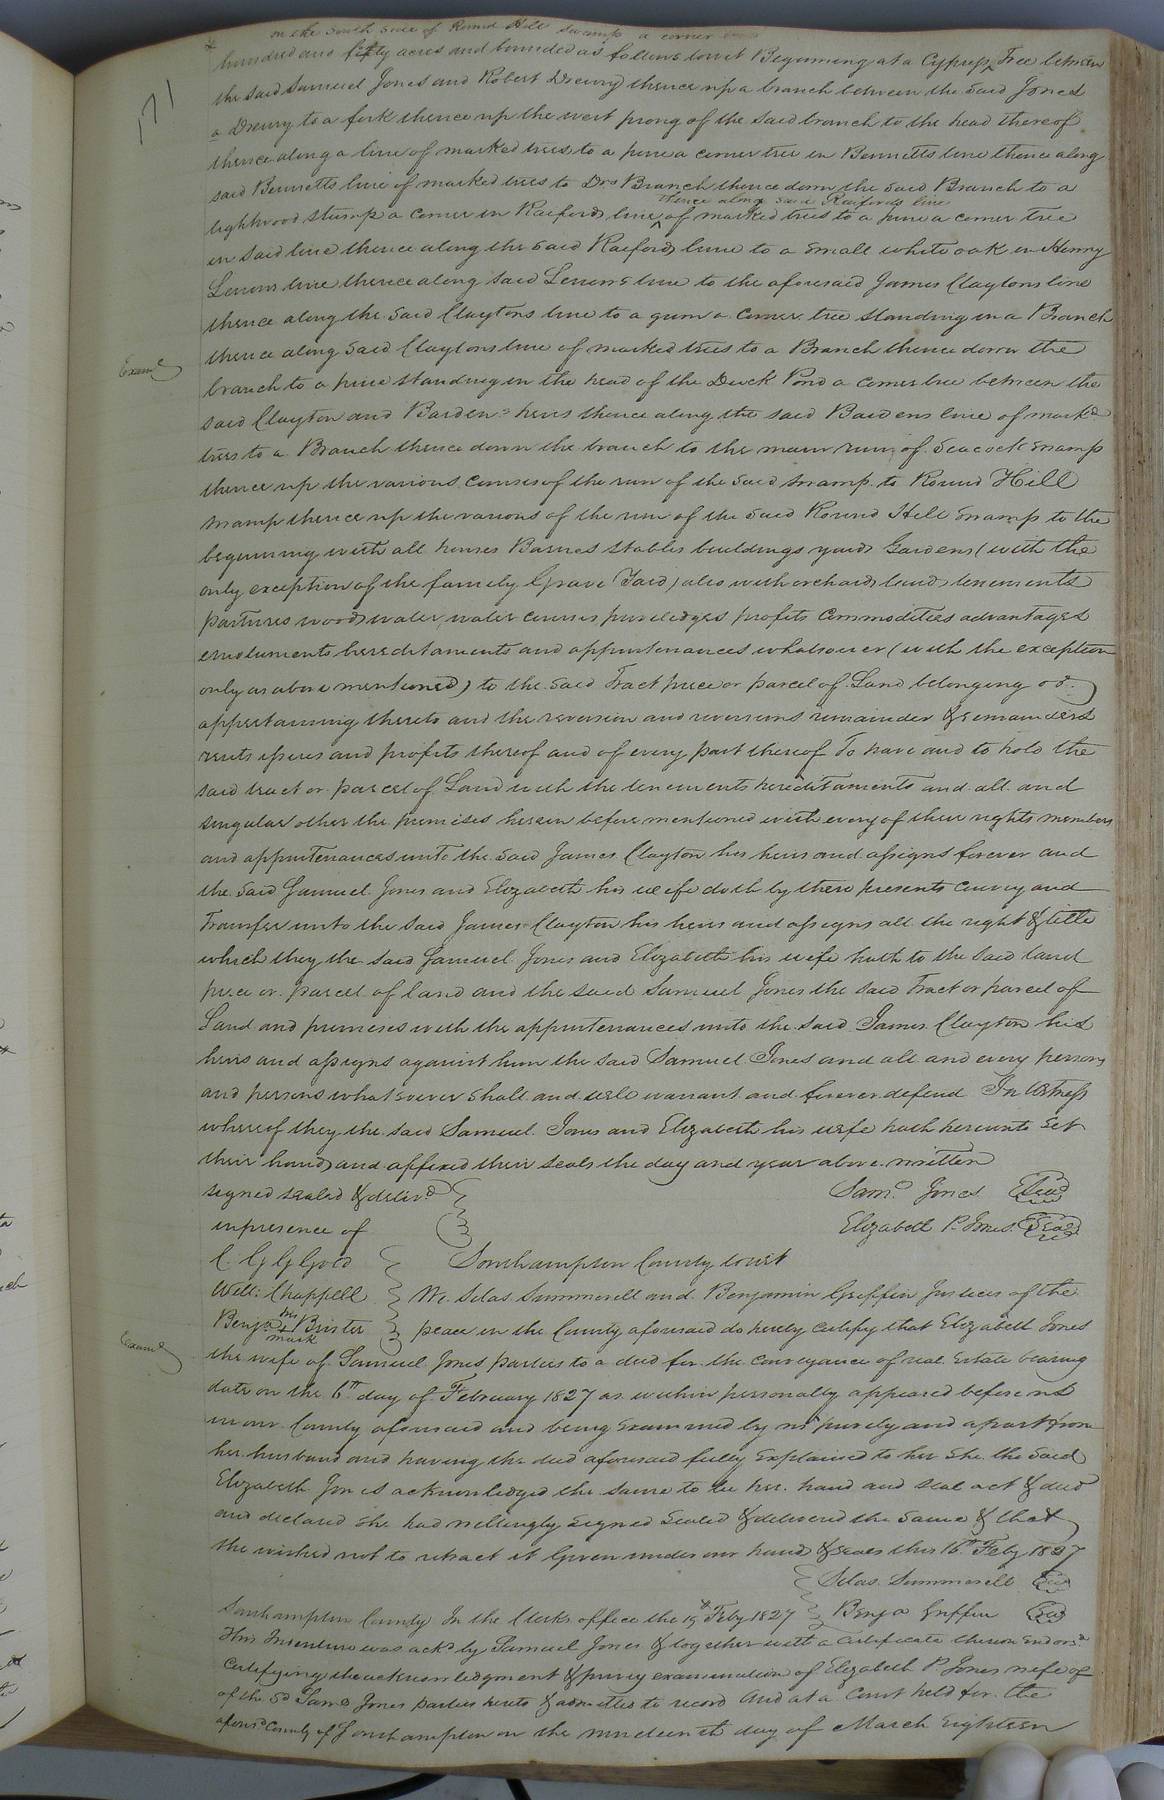 171
on the South side of Round Hill Swamp a corner
hundred and fifty acres and bounded as follows towit Beginning at a Cypress Tree between
the said Samuel Jones and Robert Drewry thence up a branch between the said Jones
a Drewry to a fork thence up the west prong of the said branch to the head thereof
thence along a line of marked trees to a pine a corner tree in Bennetts line thence along
said Bennetts line of marked trees to Drs Branch thence down the said Branch to a
thence along said Raifords line
lightwood stump a corner in Raifords line of marked trees to a pine a corner tree
in said line thence along the said Raifords line to a small white oak in Henry
line thence along said line to the aforesaid James Claytons line
thence along the said Claytons line to a gum a corner tree standing in a Branch
Examd
thence along said Claytons line of marked trees to a Branch thence down the
branch to a pine standing in the head of the Duck Pond a corner tree between the
said Clayton and Barden's heirs thence along the said Bardens line of markd
trees to a Branch thence down the branch to the main run of Seacock swamp
thence up the various courses of the run of the said swamp to Round Hill
swamp thence up the various of the run of the said Round Hill Swamp to the
beginning with all houses Barnes stables buildings yards Gardens (with the
only exception of the family Grave Yard) also with orchards lands tenements
pastures woods water water courses priviledges profits commodities advantages
emoluments hereditaments and appurtenances whatsoever (with the exception
only as above mentioned) to the said Tract piece or parcel of Land belonging or
appertaining thereto and the reversion and reversions remainder & remainders
rents issues and profits thereof and of every part thereof To have and to hold the
said tract or parcel of Land with the tenements hereditaments and all and
singular other the premises herein before mentioned with every of their rights members
and appurtenances unto the said James Clayton his heirs and assigns forever and
the said Samuel Jones and Elizabeth his wife doth by these presents convey and
Transfer unto the said James Clayton his heirs and assigns all the right & title
which they the said Samuel Jones and Elizabeth his wife hath to the said land
piece or parcel of land and the said Samuel Jones the said Tract or parcel of
Land and premises with the appurtenances unto the said James Clayton his
heirs and assigns against him the said Samuel Jones and all and every person
and persons whatsoever shall and will warrant and forever defend In Witness
whereof they the said Samuel Jones and Elizabeth his wife hath hereunto set
their hands and affixed their seals the day and year above written
signed sealed & delivd Saml Jones Seal
in presence of Elizabeth P. Jones Seal
C. G G Southampton County towit
Will: Chappell We Silas Summerell and Benjamin Griffin Justices of the
his
Benja + Brister peace in the County aforesaid do hereby certify that Elizabeth Jones
mark
Examd
the wife of Samuel Jones parties to a deed for the conveyance of real Estate bearing
date on the 6th day of February 1827 as within personally appeared before us
in our County aforesaid and being examined by us privily and apart from
her husband and having the deed aforesaid fully Explained to her She the said
Elizabeth Jones acknowledged the same to be her hand and seal act & deed
and declared she had willingly signed sealed & delivered the same & that
she wished not to retract it Given under our hands & seals this 16th Feby 1827
Silas Summerell Seal
Southampton County In the Clerks office the 19th Feby 1827 Benja Griffin Seal
This Indenture was ackd by Samuel Jones & together with a certificate thereon endorsd
certifying the acknowledgment & privy examination of Elizabeth P. Jones wife of
of the sd Saml Jones parties hereto & admitted to record And at a Court held for the
aforesd County of Southampton on the nineteenth day of March Eighteen